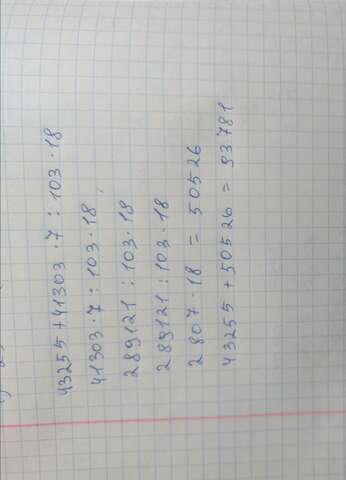 43255+41303·7:103·18
41303·7:103·18
289121:103·18
289121:103·18
2807·18=50526
43255+50526=93781